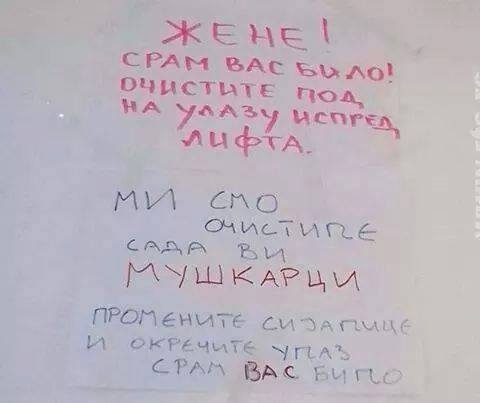 ЖЕНЕ!
СРАМ ВАС БИЛО!
ОЧИСТИТЕ ПОД
НА УЛАЗУ ИСПРЕД
ЛИФТА.
МИ СМО
ОЧИСТИЛЕ
САДА ВИ
МУШКАРЦИ
ПРОМЕНИТЕ СИЈАЛИЦЕ
И ОКРЕЧИТЕ УЛАЗ
СРАМ ВАС БИЛО